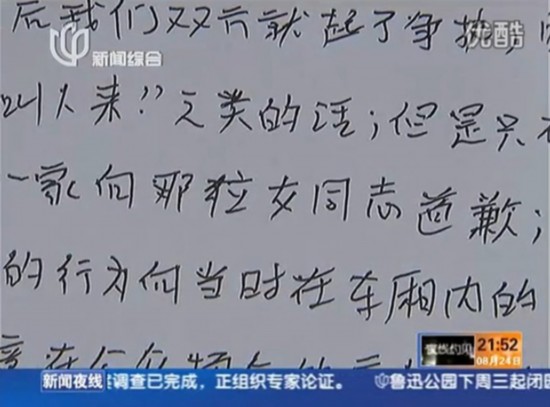 后我们双方就起了争执,
新闻综合
优酷
叫人来"之类的话;但是只
一家向那位女同志道歉;
的行为向当时在车厢内的
夜线约见
21:52
08月24日
新闻夜线
调查已完成,正组织专家论证。
鲁迅公园下周三起闭园